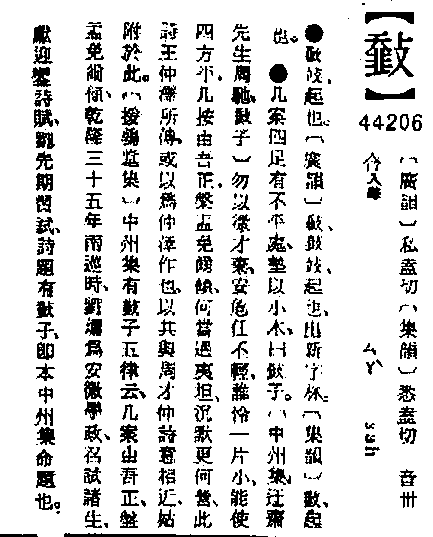 【】
44206
合入聲
〔廣韻〕私盍切〔集韻〕悉盍切 音卅
ㄙㄚˋ sah
●起也。〔廣韻〕起也、出新字林。〔集韻〕起
也。●几案四足有不平處、墊以小木、曰子。〔中州集、迂齋
先生周馳、子〕勿以微才棄、安危任不輕、誰憐一片小、能使
四方平、几按由吾正、槃盂免爾傾、何當過夷坦、沉默更何營、此
詩王仲澤所傳、或以爲仲澤作也、以其與周才仲詩意相近、姑
附於此。〔援鶉堂集〕中州集有子五律云、几案由吾正、盤
盂免爾傾、乾隆三十五年南巡時、劉墉爲安徽學政、召試諸生、
獻迎鑾詩賦、劉先期習試、詩題有子、卽本中州集命題也。